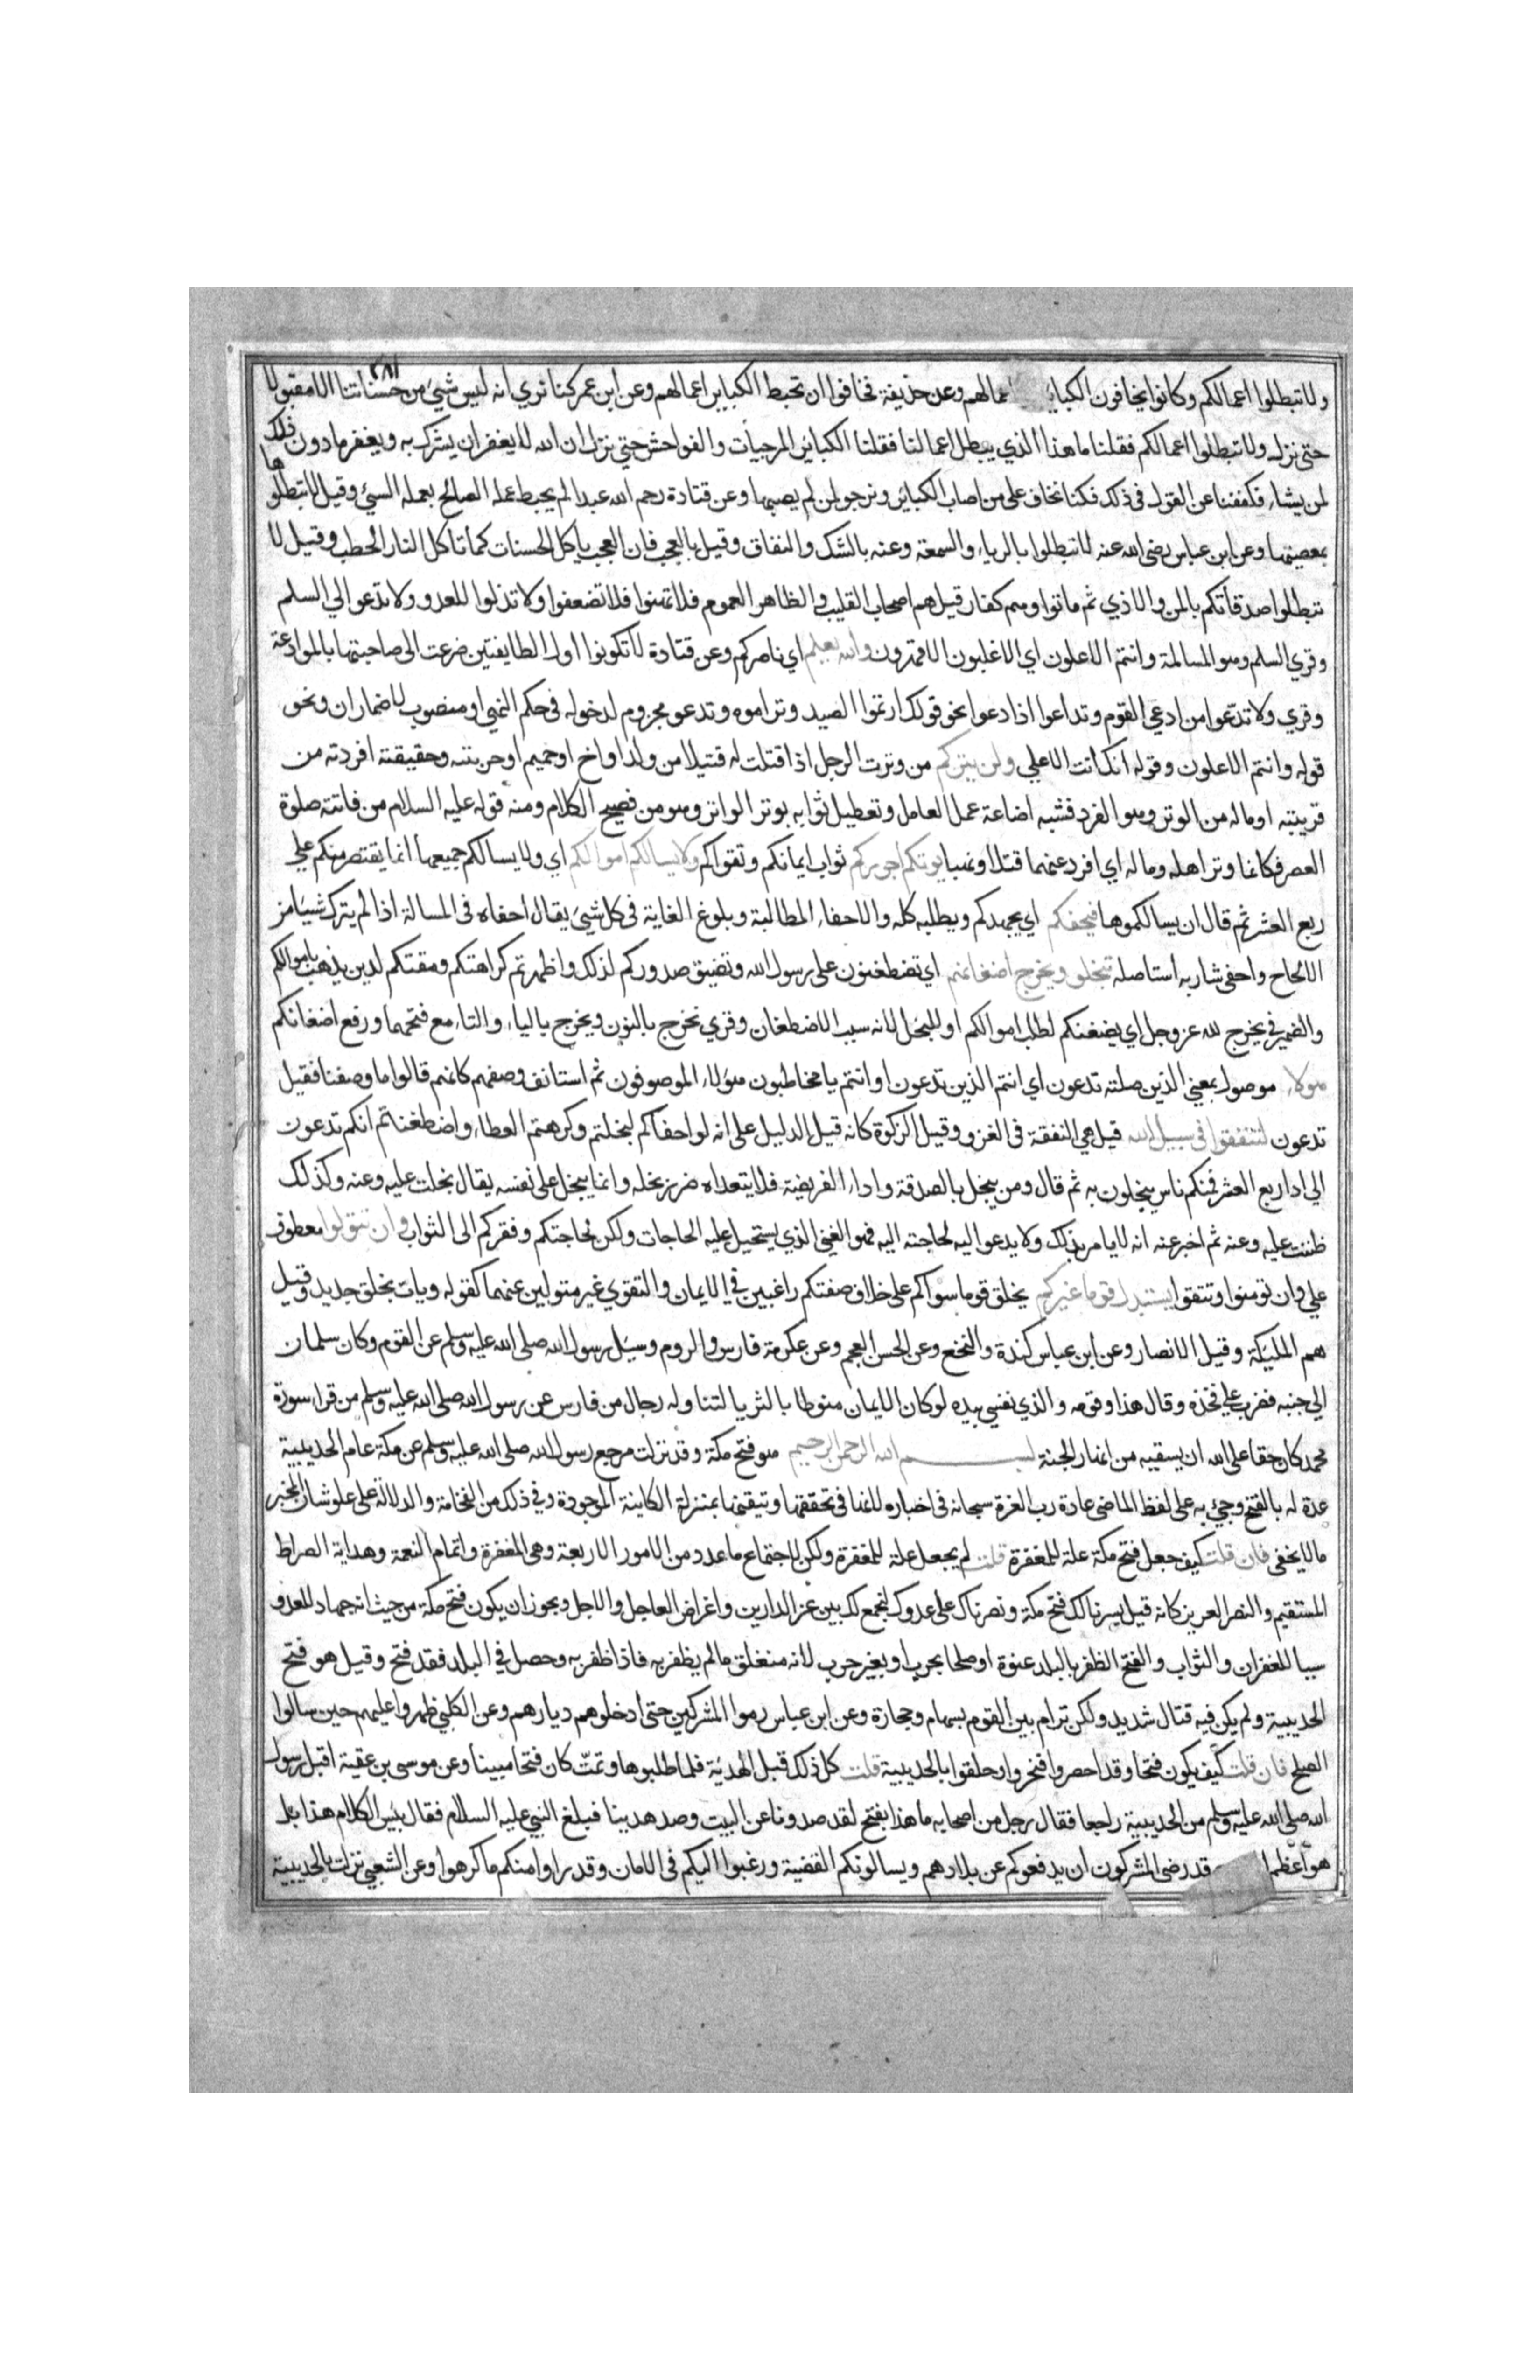 ولا تبطلوا اعمالكم وكانوا يخافون الكبائر اعمالهم وعن حذيفة فخافوا ان تحبط الكباير اعمالهم وعن ابن عمر كنا نري انه ليس شيئ من حسناتنا الا مقبولا
حتي نزل ولا تبطلوا اعمالكم فقلنا ما هذا الذي يبطل اعمالنا فقلنا الكبائر الموجبات والفواحش حتي نزل ان الله لا يغفر ان يشرك به ويغفر ما دون ذلك
لمن يشاء فكففنا عن القول فى ذلك فكنا نخاف على من اصاب الكبائر ونرجو لمن لم يصبها وعن قتادة رحم الله عبدا لم يحبط عمله الصالح بعمله السيئ وقيل لا تبطلوها
بمعصيتهما وعن ابن عباس رضى الله عنه لا تبطلوا بالرياء والسمعة وعنه بالشك والنفاق وقيل بالعجب فان العجب ياكل الحسنات كما تاكل النار الحطب وقيل لا
تبطلوا صدقاتكم بالمن والاذي ثم ماتوا وهم كفار قيل هم اصحاب القليب والظاهر العموم فلا تهنوا فلا تضعفوا ولا تذلوا للعدو ولا تدعو الي السلم
وقري السلم وهو المسالمة وانتم الاعلون اي الاغلبون الاقهرون والله معكم اي ناصركم وعن قتادة لا تكونوا اول الطايفتين ضرعت الى صاحبتها بالموادعة
وقري ولا تدعوا من ادعي القوم وتداعوا اذا دعوا نحو قولك ارتموا الصيد وتراموه وتدعو مجزوم لدخوله فى حكم النهي او منصوب لاضمار ان ونحو
قوله وانتم الاعلون وقوله انك انت الاعلي ولن يتركم من وترت الرجل اذا قتلت له قتيلا من ولد او اخ او حميم او حربته وحقيقته افردته من
قريبه او ماله من الوتر وهو الفرد فشبه اضاعة عمل العامل وتعطيل ثوابه بوتر الواتر وهو من فصيح الكلام ومنه قوله عليه السلام من فاتته صلوة
العصر فكانما وتر اهله وماله اي افرد عنهما قتلا ونهبا يوتكم اجوركم ثواب ايمانكم وتقواكم ولا يسالكم اموالكم اي ولا يسالكم جميعها انما يقتصر منكم علي
ربع العشر ثم قال ان يسالكموها فيحفكم اي يجهدكم ويطلبه كله والاحفاء المطالبة وبلوغ الغاية فى كل شيئ يقال احفاه فى المسالة اذا لم يترك شيئا من
الالحاح واحفى شاربه استاصله تبخلوا ويخرج اضغانكم اي تضطغنون على رسول الله وتضيق صدوركم لذلك واظهرتم كراهتكم ومقتكم لدين يذهب باموالكم
والضمير فى يخرج لله عز وجل اي يضغنكم لطلب اموالكم او للبخل لانه سبب الاضطغان وقري نخرج بالنون ويخرج بالياء والتاء مع فتحهما ورفع اضغانكم
هولاء موصول بمعني الذين صلته تدعون اي انتم الذين تدعون او انتم يا مخاطبون هؤلاء الموصوفون ثم استانف وصفهم كانهم قالوا ما وصفنا فقيل
تدعون لتنفقوا فى سبيل الله قيل هي النفقة فى الغزو وقيل الزكوة كانه قيل الدليل على انه لو احفاكم لبخلتم وكرهتم العطاء واضطغنتم انكم تدعون
الي اداء ربع العشر فمنكم ناس يبخلون به ثم قال ومن يبخل بالصدقة واداء الفريضة فلا يتعداه ضرر بخله وانما يبخل على نفسه يقال بخلت عليه وعنه وكذلك
ظننت عليه وعنه ثم اخبر عنه انه لا يامر بذلك ولا يدعوا اليه لحاجته اليه فهو الغني الذي يستحيل عليه الحاجات ولكن لحاجتكم وفقركم الى الثواب وان تتولوا معطوف
علي وان تومنوا وتتقوا يستبدل قوما غيركم يخلق قوما سواكم على خلاف صفتكم راغبين فى الايمان والتقوي غير متولين عنهما كقوله ويات بخلق جديد وقيل
هم المليكة وقيل الانصار وعن ابن عباس كندة والنخع وعن الحسن العجم وعن عكرمة فارس والروم وسيل رسول الله صلى الله عليه وسلم عن القوم وكان سلمان
الي جنبه فضرب علي فخذه وقال هذا وقومه والذي نفسي بيده لو كان الايمان منوطا بالثريا لتناوله رجال من فارس عن رسول الله صلى الله عليه وسلم من قراء سورة
محمد كان حقا على الله ان يسقيه من انهار الجنة بسم الله الرحمن الرحيم هو فتح مكة وقد نزلت مرجع رسول الله صلى الله عليه وسلم عن مكة عام الحديبية
عدة له بالفتح وجيئ به على لفظ الماضى عادة رب العزة سبحانه فى اخباره لانها فى تحققها وتيقنها بمنزلة الكاينة الموجودة وفي ذلك من الفخامة والدلالة على علو شان المخبر
ما لا يخفى فان قلت كيف جعل فتح مكة علة للمغفرة قلت لم يجعل علة للمغفرة ولكن لاجتماع ما عدد من الامور الاربعة وهى المغفرة واتمام النعمة وهداية الصراط
المستقيم والنصر العزيز كانه قيل يسرنا لك فتح مكة ونصرناك على عدوك لنجمع لك بين عز الدارين واغراض العاجل والاجل ويجوز ان يكون فتح مكة من حيث انه جهاد للعدو
سببا للغفران والثواب والفتح الظفر بالبلد عنوة او صلحا بحرب او بغير حرب لانه منغلق ما لم يظفر به فاذا ظفر به وحصل في البلد فقد فتح وقيل هو فتح
الحديبية ولم يكن فيه قتال شديد ولكن ترام بين القوم بسهام وحجارة وعن ابن عباس رموا المشركين حتى ادخلوهم ديارهم وعن الكلبي ظهروا عليهم حين سالوا
الصلح فان قلت كيف يكون فتحا وقد احصروا فنحروا وحلقوا بالحديبية قلت كل ذلك قبل الهدنة فلما طلبوها وتمت كان فتحا مبينا وعن موسى بن عقبة اقبل رسول
الله صلى الله عليه وسلم من الحديبية راجعا فقال رجل من اصحابه ما هذا بفتح لقد صدونا عن البيت وصد هدينا فبلغ النبي عليه السلام فقال بئس الكلام هذا بل
هو اعظم قد رضى المشركون ان يدفعوكم عن بلادهم ويسالونكم القضية ورغبوا اليكم فى الامان وقد راوا منكم ما كرهوا وعن الشعبي نزلت بالحديبية